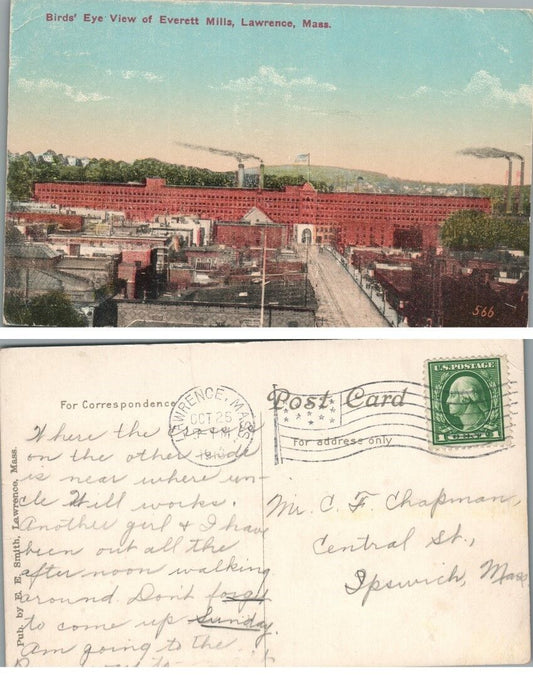 Birds' Eye View of Everett Mills, Lawrence, Mass.
566
For Correspondence
Post Card
For address only
LAWRENCE, MASS.
OCT 25
U.S. POSTAGE
1 CENTS 1
Pub. by E. E. Smith, Lawrence, Mass.
Where the is
on the other side
is near where un-
cle Will works.
Another girl & I have
been out all the
after noon walking
around. Dont forget
to come up Sunday.
Am going to the
Mr. C. F. Chapman,
Central St.,
Ipswich, Mass